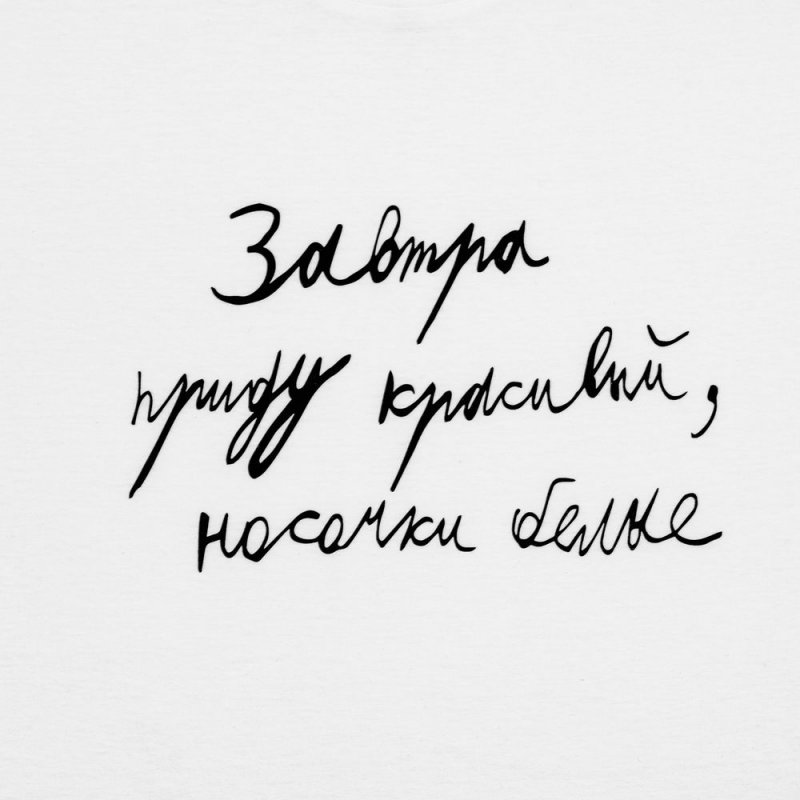 Завтра
приду красивый,
носочки белые